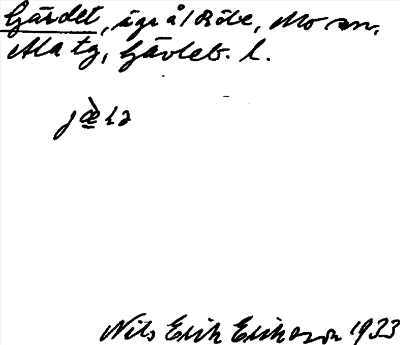 Gärdet, ägr å/Röle, Mo sn,
Ala tg, Gävleb. l.
Nils Erik Eriksson 1933